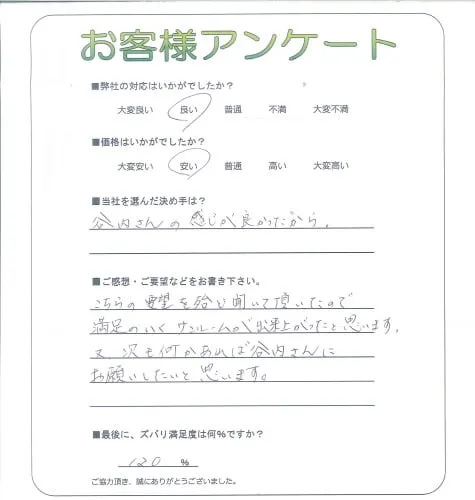 お客様アンケート
■弊社の対応はいかがでしたか?
大変良い 良い 普通 不満 大変不満
■価格はいかがでしたか?
大変安い 安い 普通 高い 大変高い
■当社を選んだ決め手は?
谷内さんの感じが良かったから。
■ご感想・ご要望などをお書き下さい。
こちらの要望を殆ど聞いて頂いたので
満足のいくサンルームが出来上がったと思います。
又、次も何かあれば谷内さんに
お願いしたいと思います。
■最後に、ズバリ満足度は何%ですか?
120 %
ご協力頂き、誠にありがとうございました。